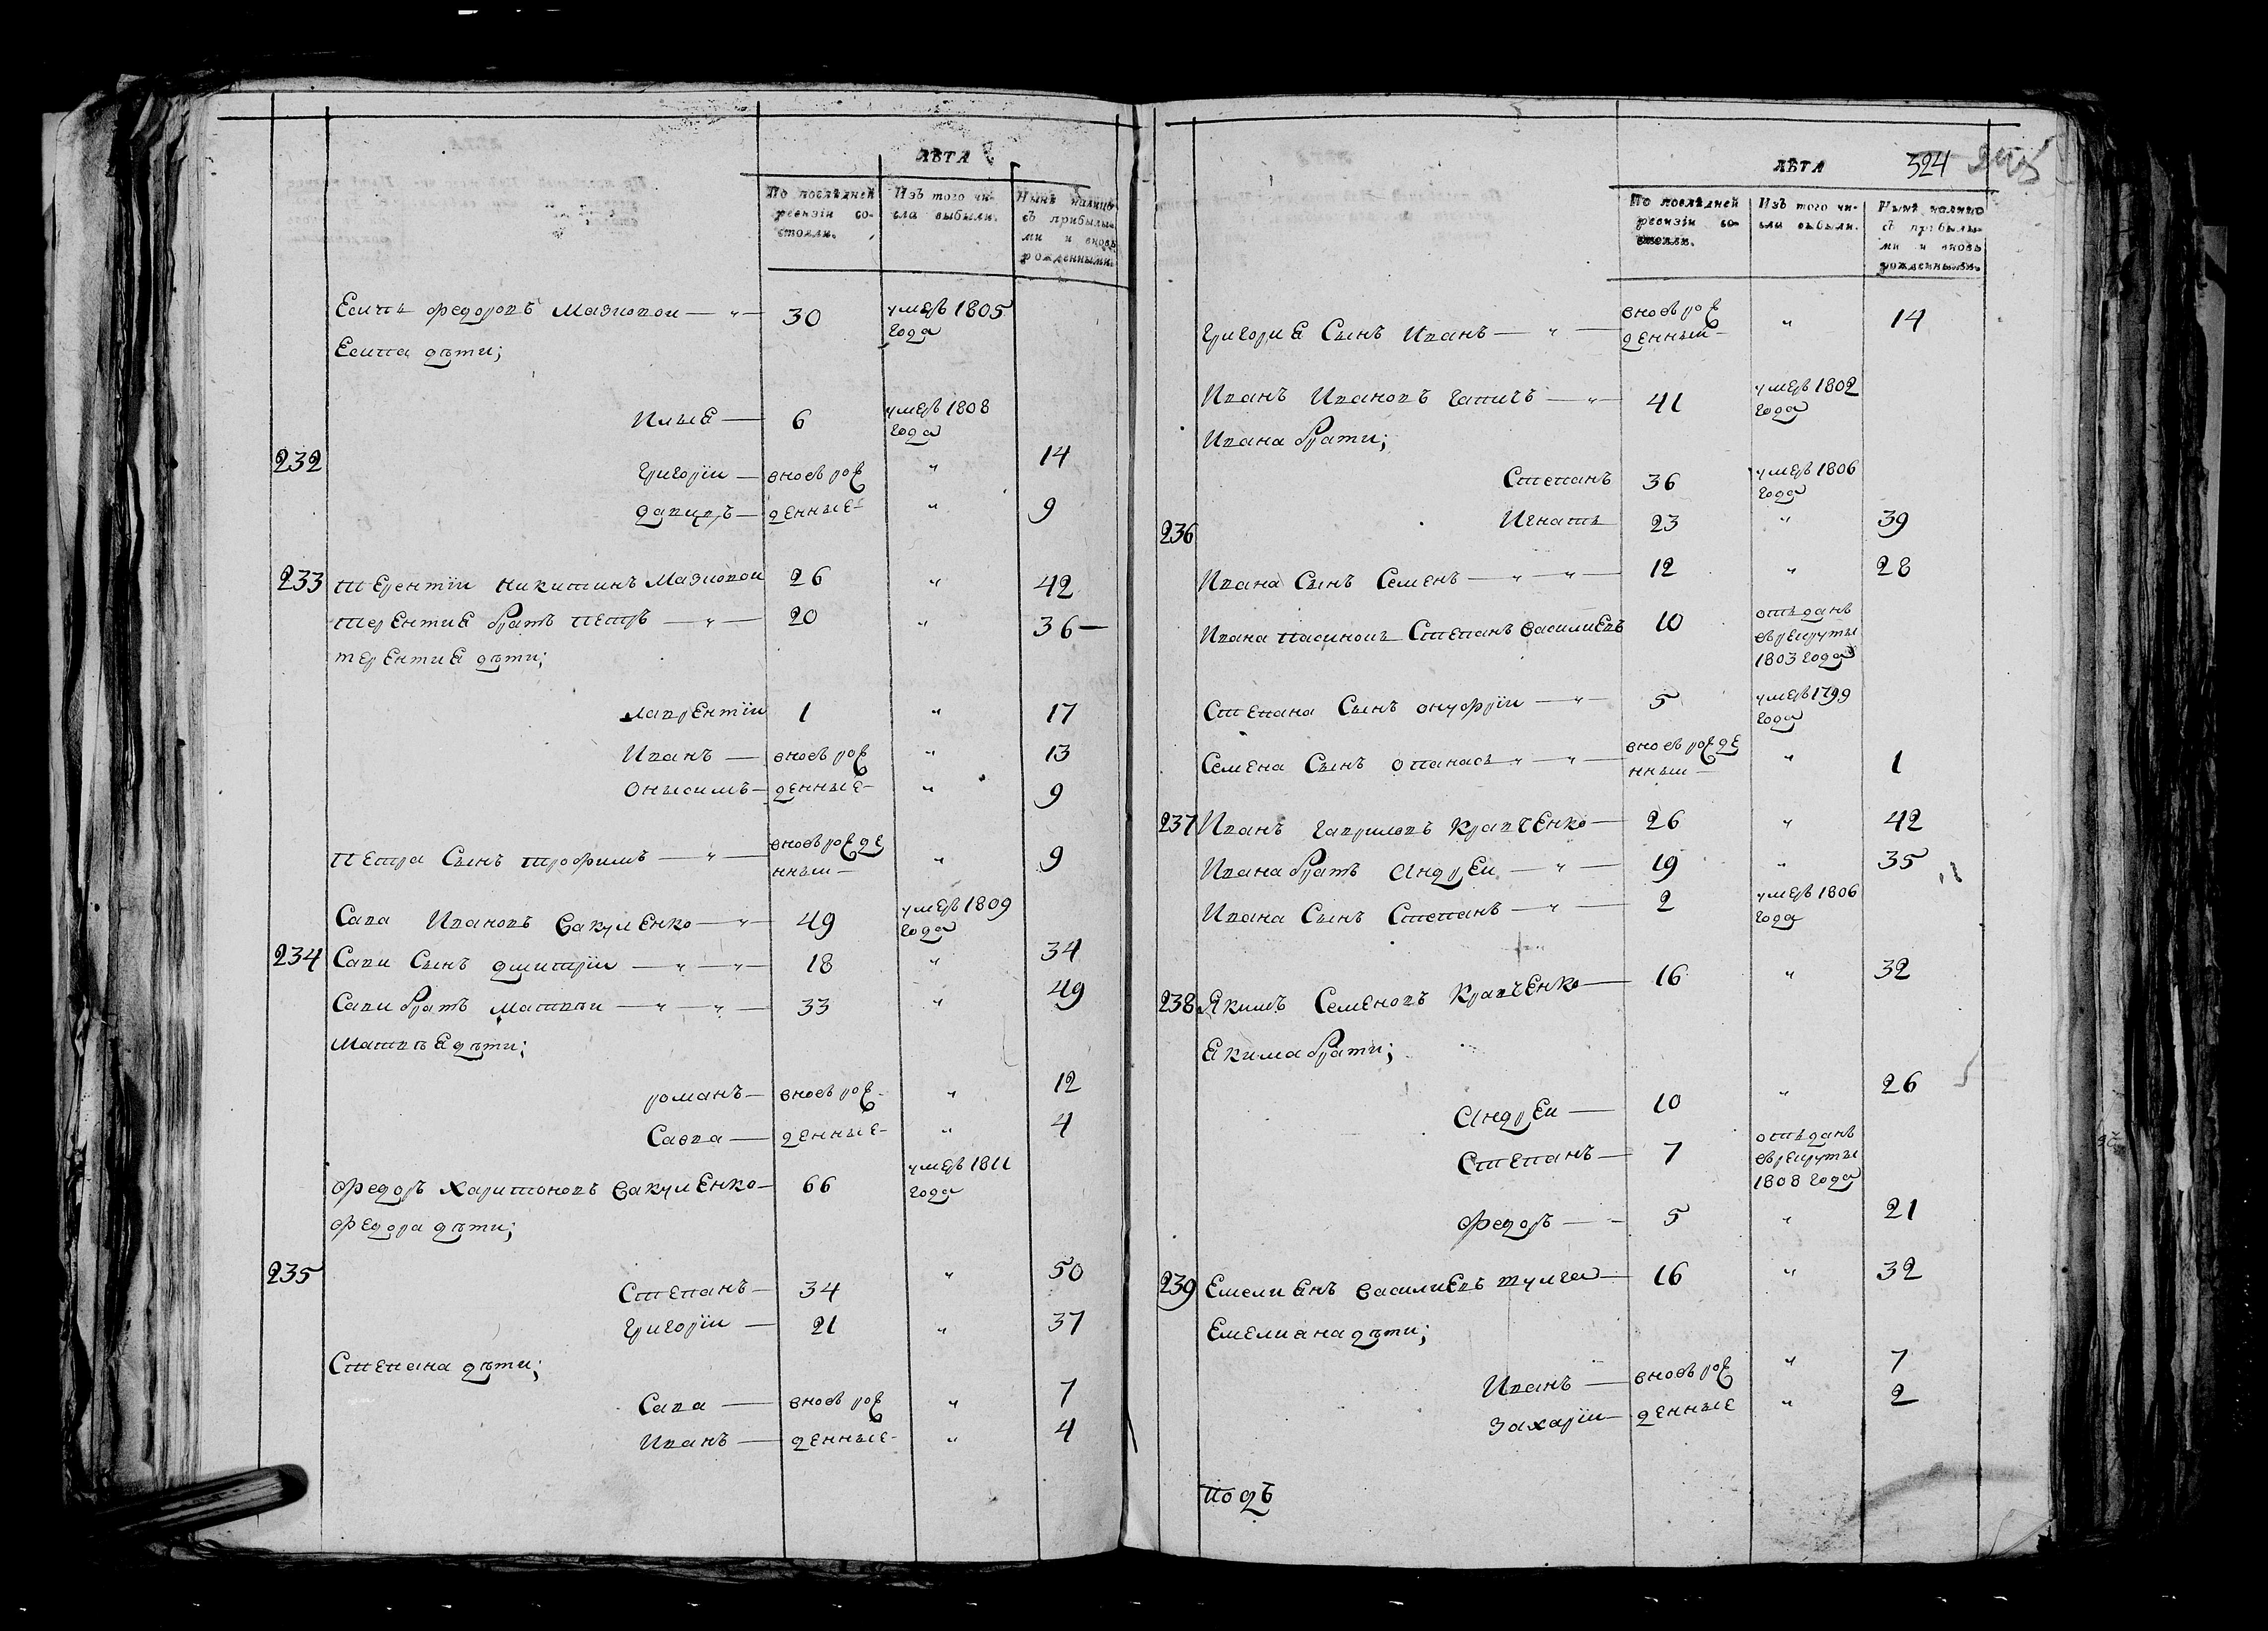 ЛѢТА
По послѣдней ревизіи состояли.
Изъ того числа выбыли.
Нынѣ налицо съ прибылыми и вновь рожденными.
Есипъ Федоровъ Мазиовои — " — 30 умеръ 1805 года
Есипа дѣти;
Илья — 6 умеръ 1808 года
232 Григории — вновь рож " 14
Давидъ — денные — " 9
233 Терентіи Никитинъ Мазиовои 26 " 42
Терентия братъ Петръ — " — 20 " 36 —
Терентия дѣти;
Лаврентіи 1 " 17
Иванъ — вновь рож " 13
Онысимъ — денные — " 9
Петра Сынъ Трофимъ — " — вновь рожденныи — " 9
Сава Ивановъ Вакуленко — " — 49 умеръ 1809 года
234 Сави Сынъ Дмитріи — " — " — 18 " 34
Сави братъ Матвѣи — " — " — 33 " 49
Матвѣя дѣти;
Романъ — вновь рож " 12
Савва — денные — " 4
Федоръ Харитоновъ Вакуленко — 66 умеръ 1811 года
Федора дѣти;
235 Степанъ — 34 " 50
Григоріи — 21 " 37
Степана дѣти;
Сава — вновь рож " 7
Иванъ — денные — " 4
ЛѢТА
324
По послѣдней ревизіи состояли.
Изъ того числа выбыли.
Нынѣ налицо съ прибылыми и вновь рожденными.
Григория Сынъ Иванъ — " — вновь рожденныи — " 14
Иванъ Ивановъ Гапичъ — " — 41 умеръ 1802 года
Ивана брати;
Степанъ 36 умеръ 1806 года
236 Игнатъ 23 " 39
Ивана Сынъ Семенъ — " — " — 12 " 28
Ивана Пасинокъ Степанъ Василиевъ 10 отъданъ въ рекруты 1803 года
Степана Сынъ Онуфріи — " — 5 умеръ 1799 года
Семена Сынъ Опанасъ — " — " — вновь рожденныи — " 1
237 Иванъ Гавриловъ Кравченко — 26 " 42
Ивана братъ Андреи — " — 19 " 35
Ивана Сынъ Степанъ — " — 2 умеръ 1806 года
238 Якимъ Семеновъ Кравченко — 16 " 32
Якима брати;
Андреи — 10 " 26
Степанъ — 7 отъданъ въ рекруты 1808 года
Федоръ — 5 " 21
239 Емелиянъ Василиевъ Тулга — 16 " 32
Емелиана дѣти;
Иванъ — вновь рож " 7
Захаріи — денные " 2
Подъ